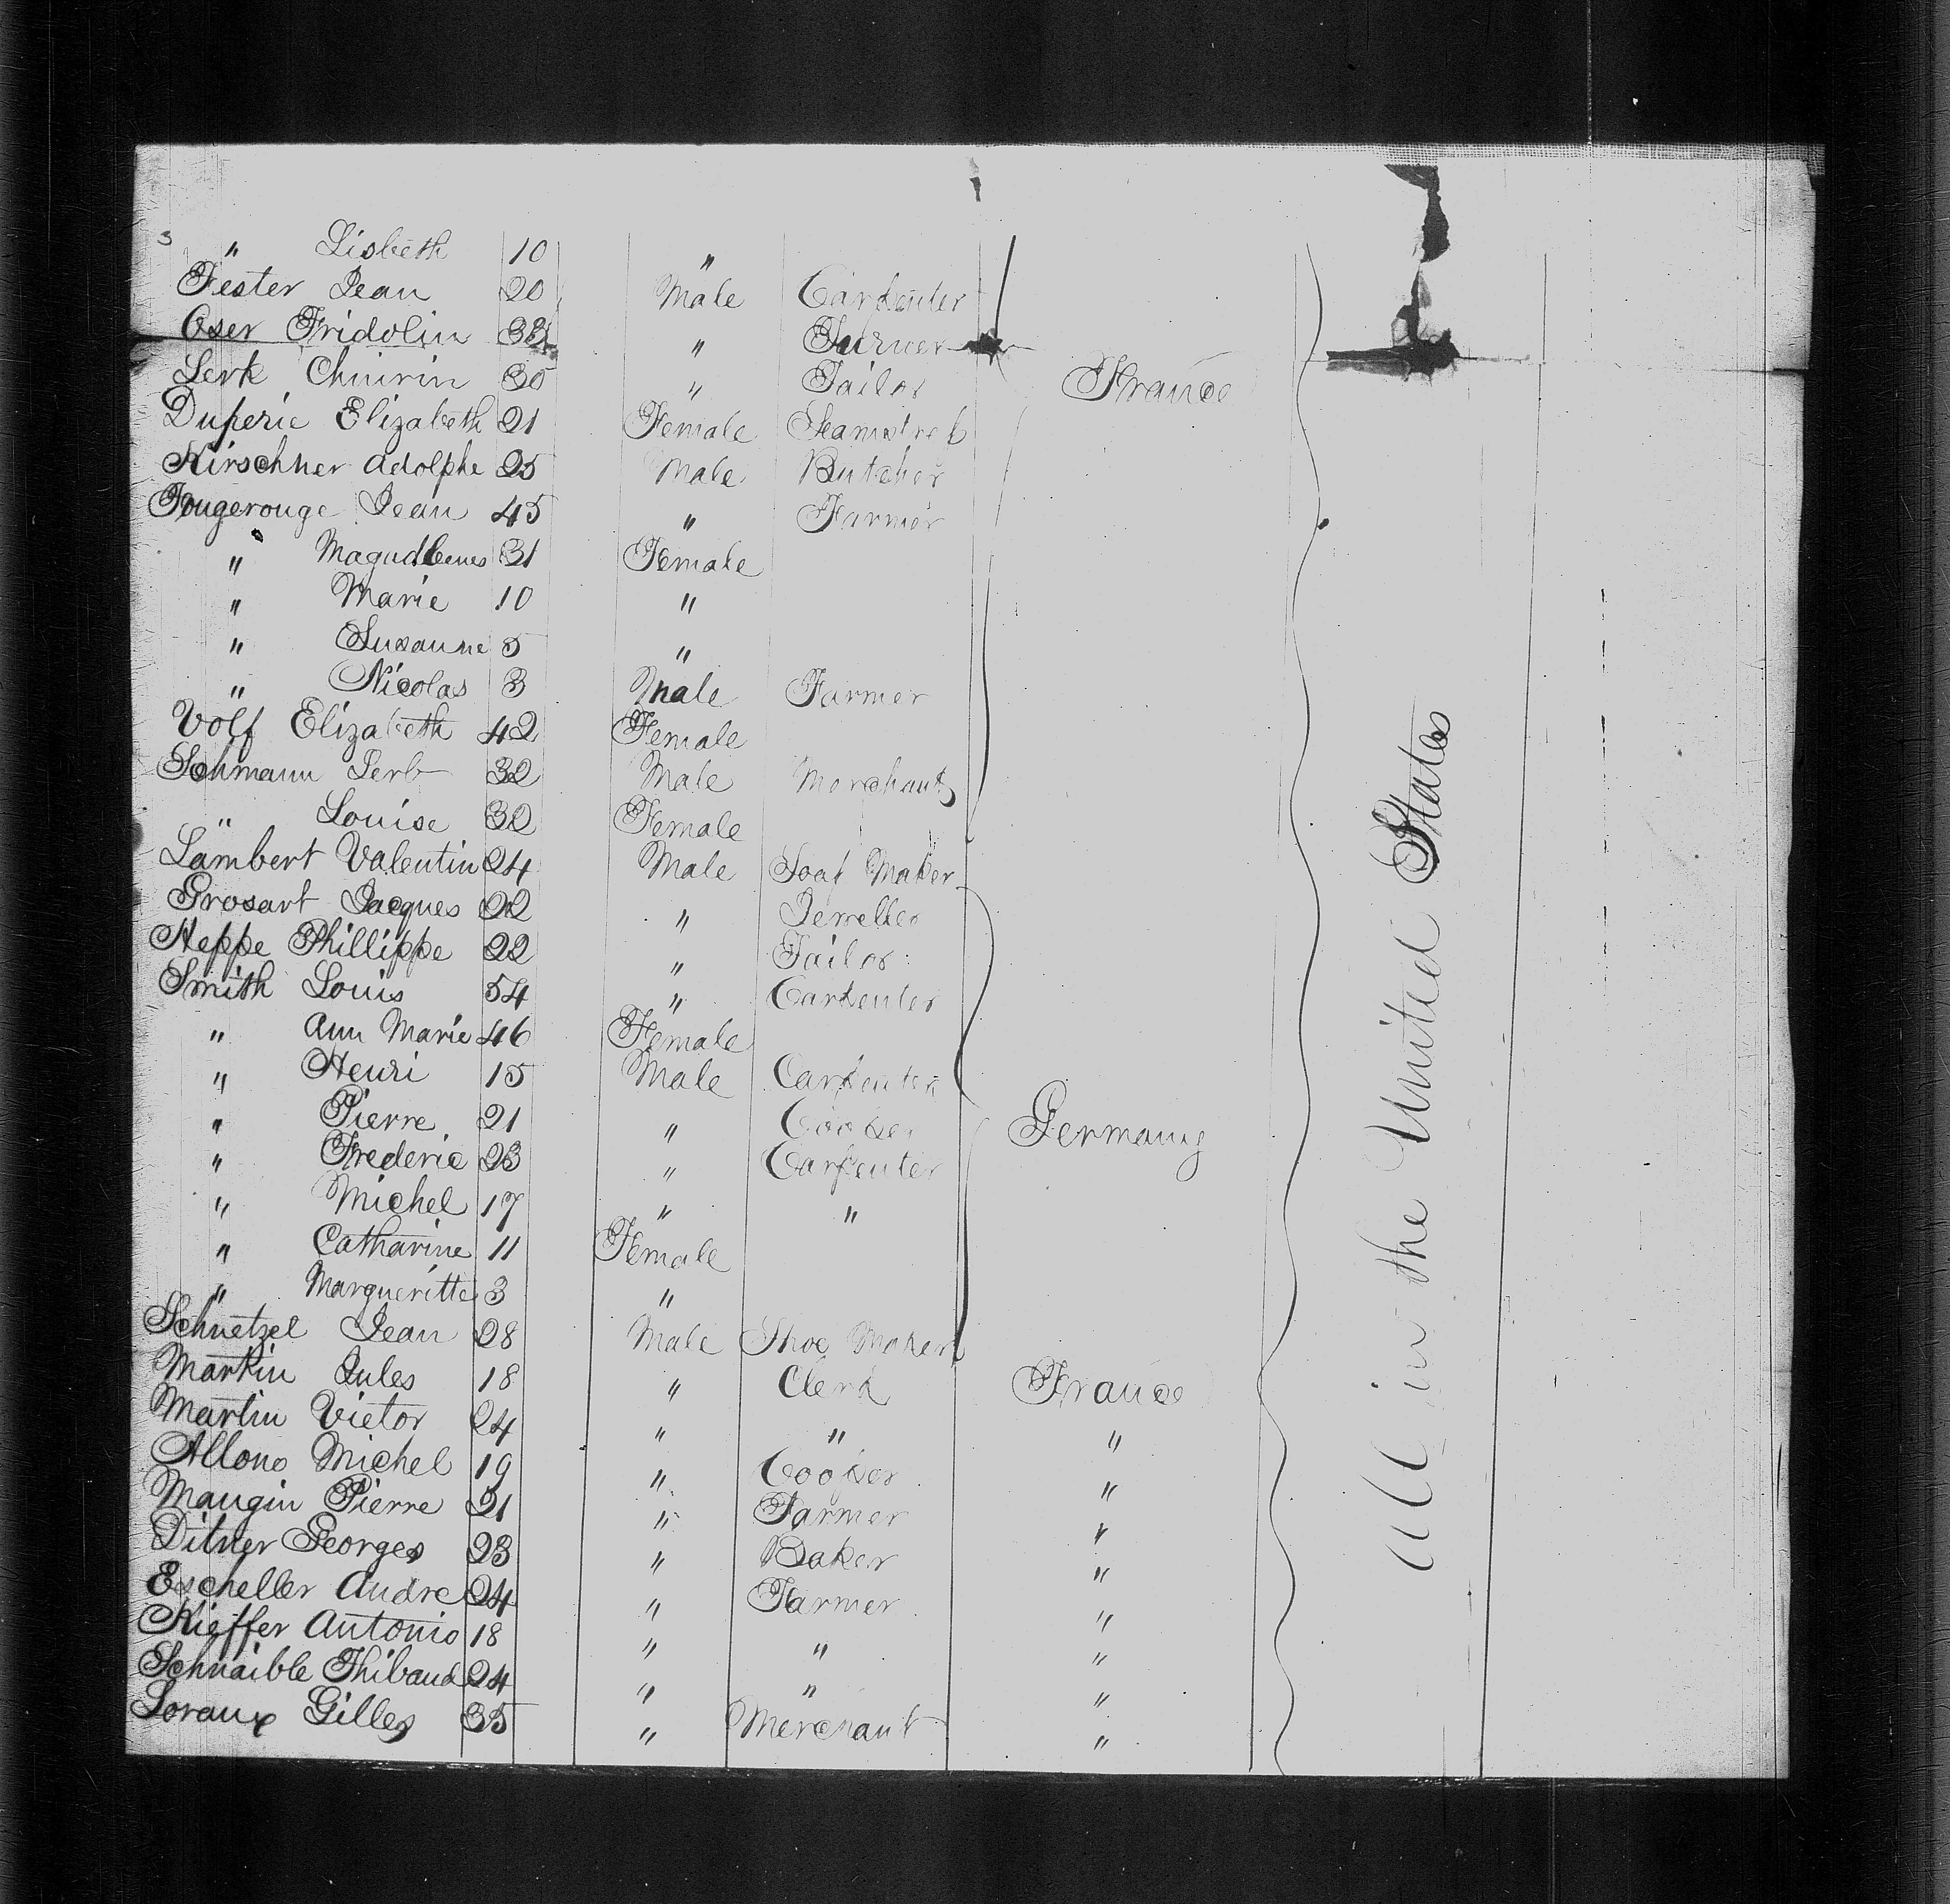 3 " Lisbeth 10 "
Fester Jean 20 Male Carpenter
Oser Fridolin 38 " Turner
Lerk Chuirin 30 " Tailor France
Duperie Elizabeth 21 Female Seamstress
Kirschner Adolphe 25 Male Butcher
Fougerouge Jean 45 " Farmer
" 31 Female
" Marie 10 "
" Susanne 5 "
" Nicolas 3 Male Farmer
Volf Elizabeth 42 Female
Sohmann 32 Male Merchant
" Louise 32 Female
Lambert Valentin 24 Male Soap Maker
Grosart Jacques 22 " Jeweller
Heppe Phillippe 22 " Tailor
Smith Louis 54 " Carpenter
" Ann Marie 46 Female
" Henri 15 Male Carpenter
" Pierre 21 " Cooper Germany
" Frederic 23 " Carpenter
" Michel 17 " "
" Catharine 11 Female
" Margueritte 3 "
Schnetzel Jean 28 Male Shoe Maker
Martin Jules 18 " Clerk France
Martin Victor 24 " " "
Allono Michel 19 " Cooper "
Maugin Pierre 21 " Farmer "
Ditner Georges 23 " Baker "
Escheller Andre 24 " Farmer "
Kieffer Antonio 18 " " "
Schnaible Thibaud 24 " " "
Loraux Gilles 35 " Merchant "
All in the United States